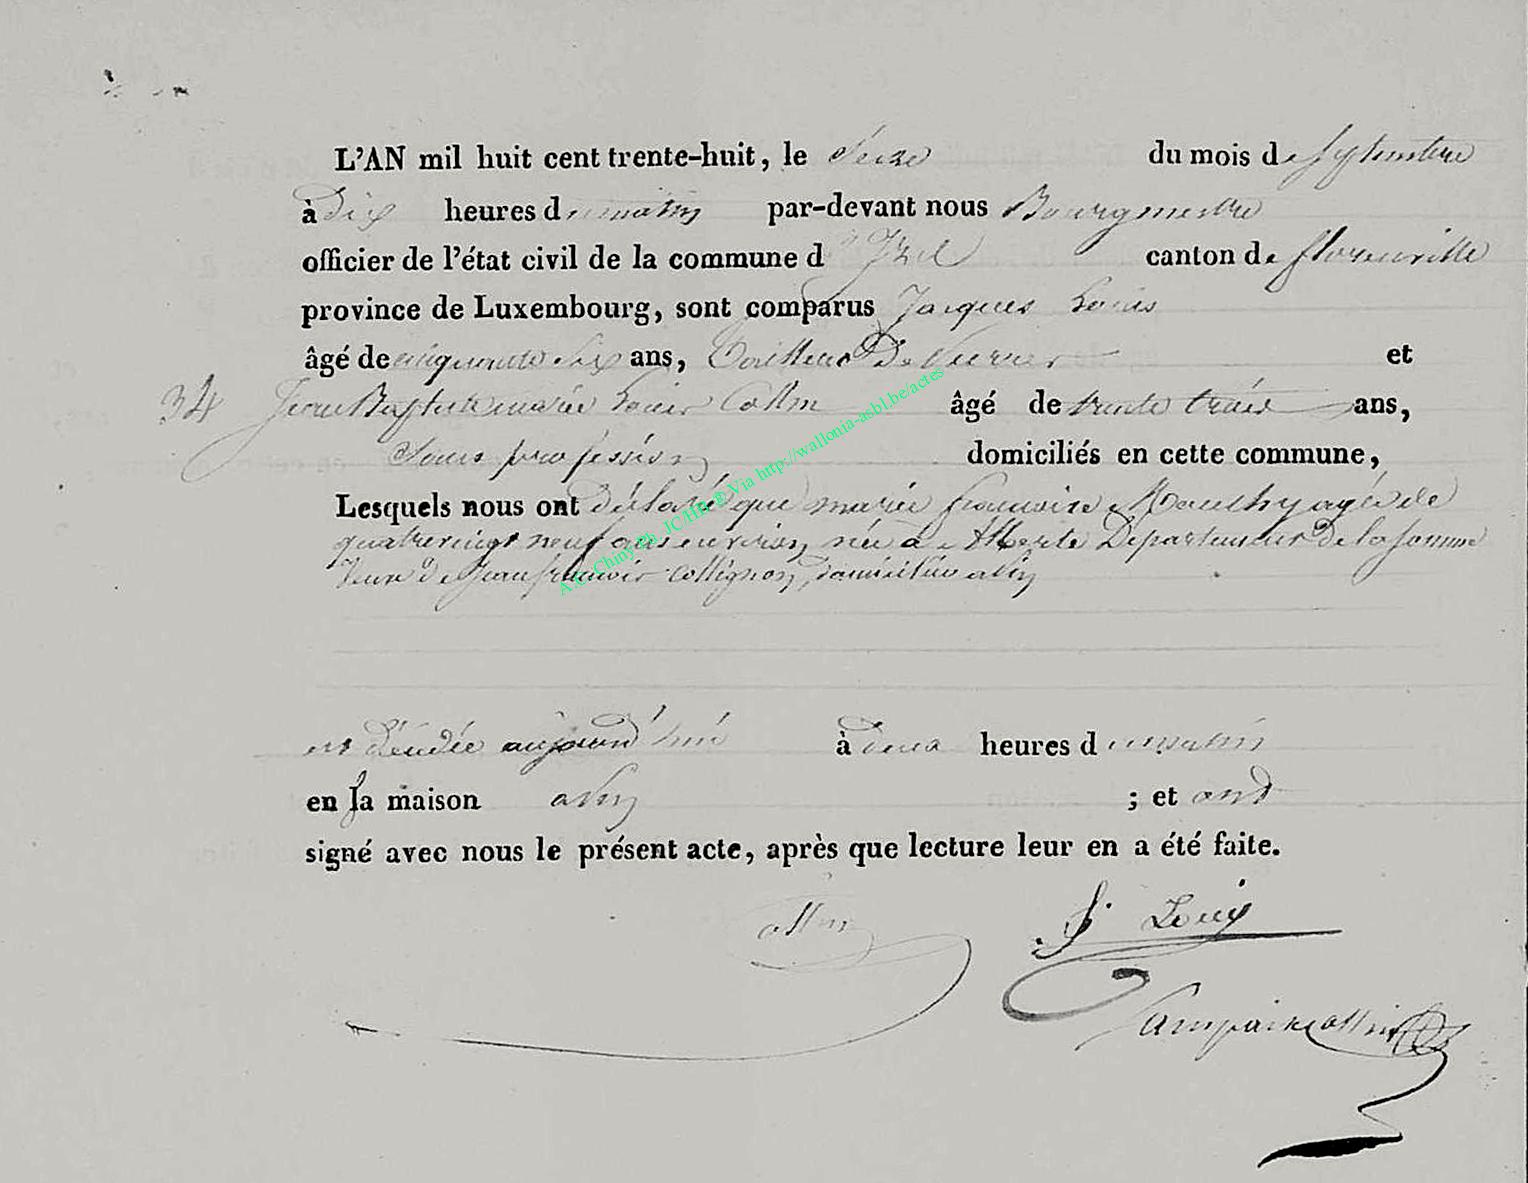 L'AN mil huit cent trente-huit, le seize du mois de septembre
à dix heures du matin par-devant nous Bourgmestre
officier de l'état civil de la commune d'Izel canton de florenville
province de Luxembourg, sont comparus Jacques Louis
âgé de cinquante six ans, Tailleur De Pierres et
34 Jean Baptiste marie Louis Collin âgé de trente trois ans,
sans profession domiciliés en cette commune,
Lesquels nous ont déclaré que marie francoise agée de
quatrevingt neuf ans environ, née à Département de la somme
veuve de Jean françois Collignon, domiciliée
est décédée aujourd'hui à deux heures du matin
en la maison ; et ont
signé avec nous le présent acte, après que lecture leur en a été faite.
Collin J. Louis
A.C. Chiny Ph. JC/HR © Via http://wallonia-asbl.be/actes